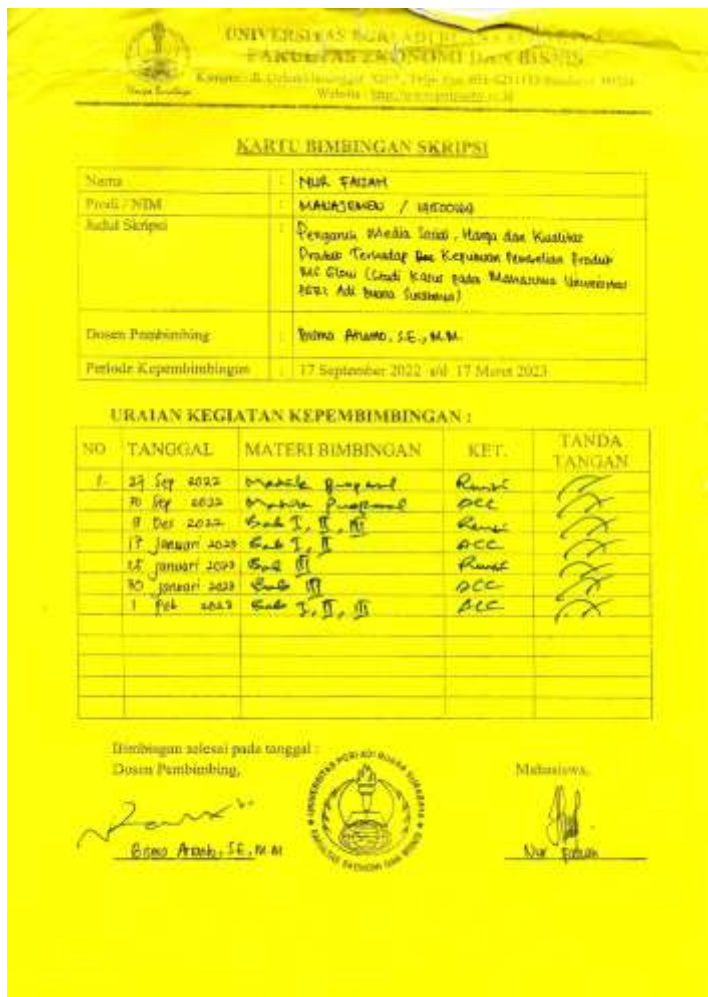 UNIVERSITAS PGRI ADI BUANA SURABAYA
FAKULTAS EKONOMI DAN BISNIS
Website :
KARTU BIMBINGAN SKRIPSI
Nama : NUR FAIZAH
Prodi / NIM : MANAJEMEN /
Judul Skripsi : Pengaruh Media Sosial, Harga dan Kualitas
Produk Terhadap Keputusan Pembelian Produk
MS Glow (Studi Kasus pada Mahasiswa Universitas
PGRI Adi Buana Surabaya)
Dosen Pembimbing : Bisma Arianto, S.E., M.M.
Periode Kepembimbingan : 17 September 2022 s/d 17 Maret 2023
URAIAN KEGIATAN KEPEMBIMBINGAN :
NO TANGGAL MATERI BIMBINGAN KET. TANDA TANGAN
1. 27 Sep 2022 Revisi
Sep 2022 ACC
9 Des 2022 Bab I, II, III Revisi
17 Januari 2023 Bab I, II ACC
25 januari 2023 Bab III Revisi
30 januari 2023 Bab III ACC
1 Feb 2023 Bab I, II, III ACC
Bimbingan selesai pada tanggal :
Dosen Pembimbing, Mahasiswa,
UNIVERSITAS PGRI ADI BUANA SURABAYA
FAKULTAS EKONOMI DAN BISNIS
Bisma Arianto, S.E, M.M Nur Faizah